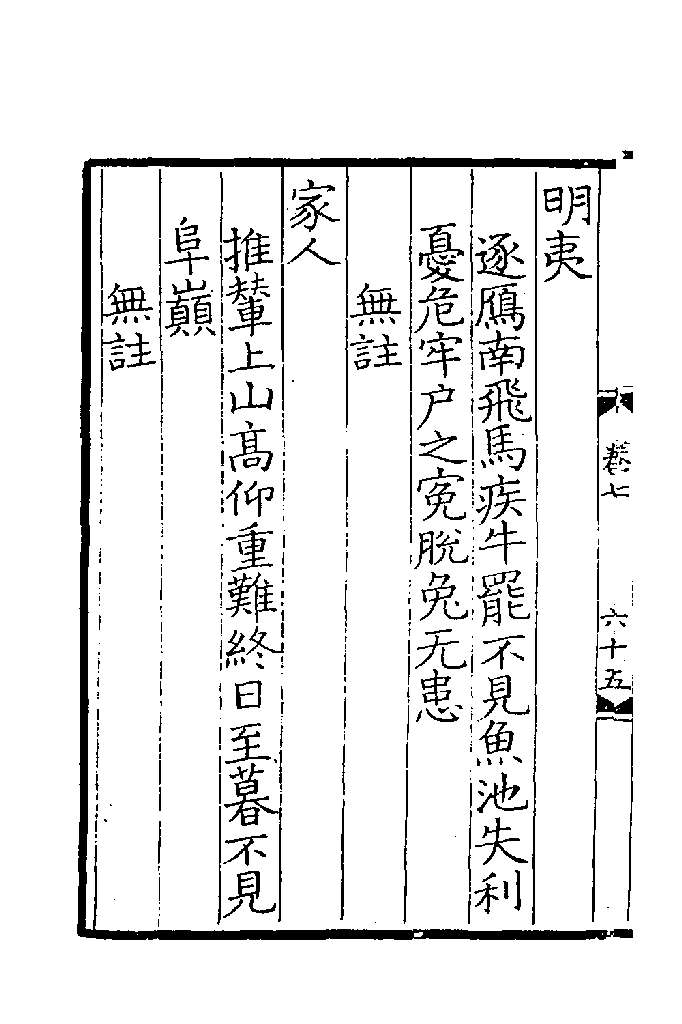 卷七
六十五
明夷
逐鴈南飛馬疾牛罷不見魚池失利
憂危牢户之寃脫兔无患
無註
家人
推輦上山高仰重難終日至暮不見
阜巔
無註